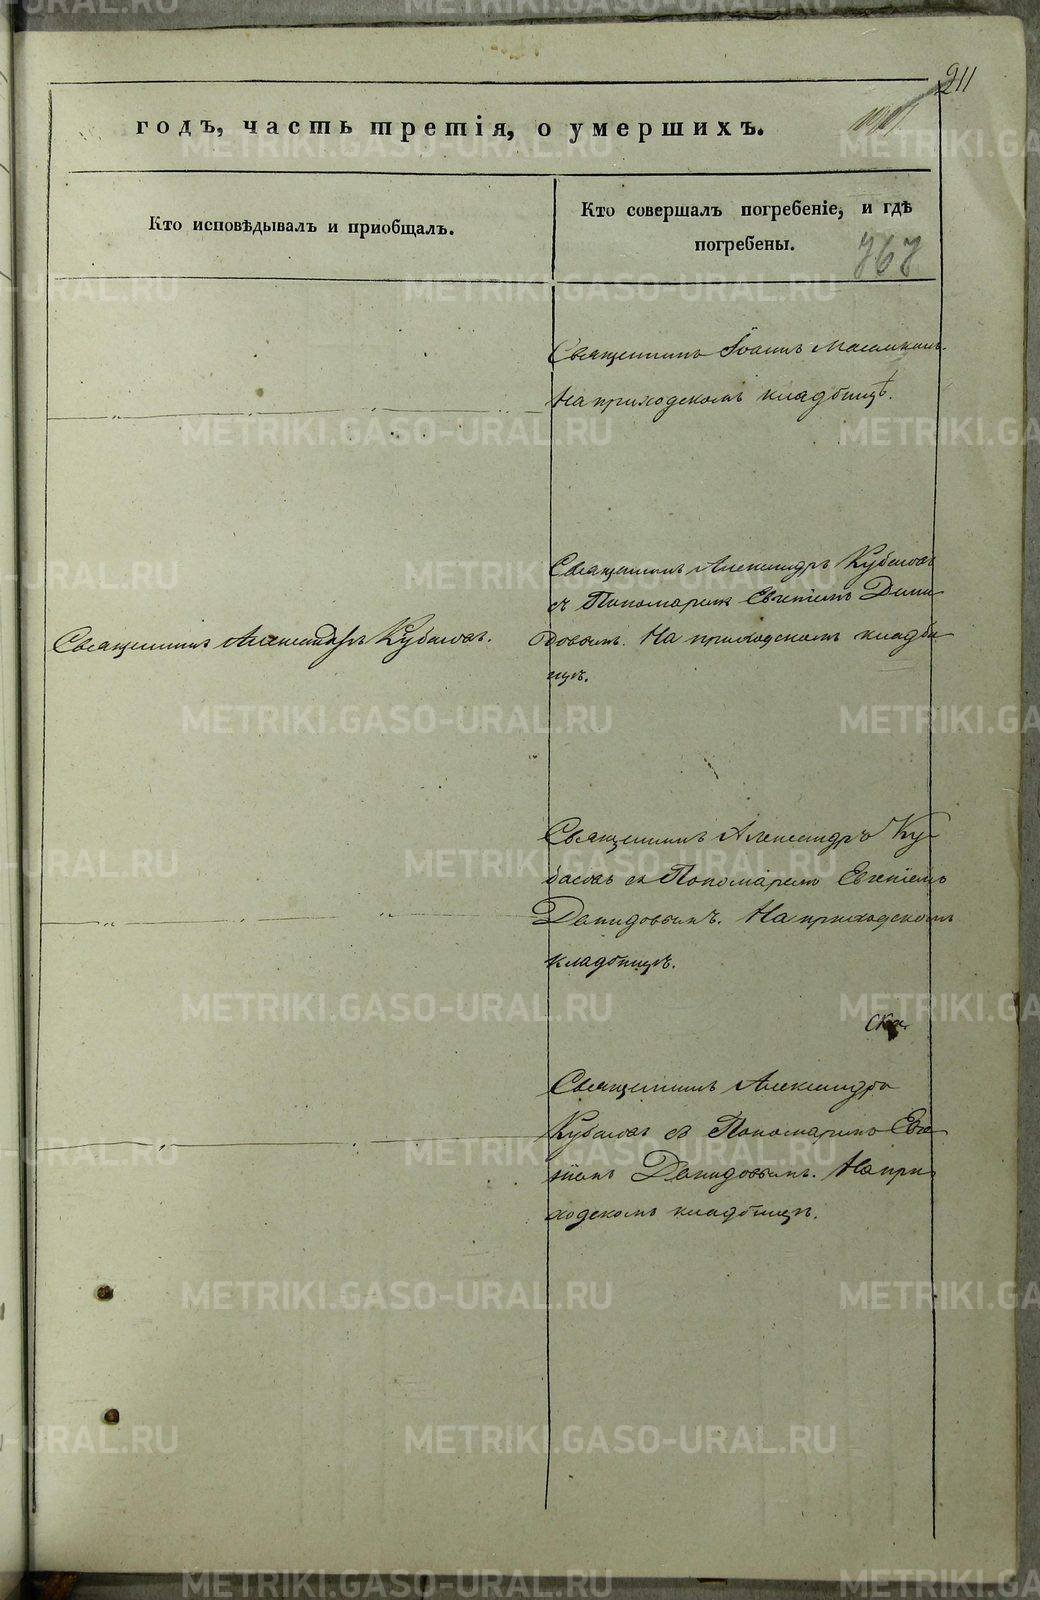 211
годъ, часть третія, о умершихъ.
Кто исповѣдывалъ и приобщалъ.
Кто совершалъ погребеніе, и гдѣ
погребены.
767
Священникъ Іоаннъ
На приходскомъ кладбищѣ.
Священникъ Александръ Кубасовъ
съ Пономаремъ Евгеніемъ Деми
Священникъ Александръ Кубасовъ.
довымъ. На приходскомъ кладби
щѣ.
Священникъ Александръ Ку-
басовъ съ Пономаремъ Евгеніемъ
Демидовымъ. На приходскомъ
кладбищѣ.
Священникъ Александръ
Кубасовъ съ Пономаремъ Евге
ніемъ Демидовымъ. На при
ходскомъ кладбищѣ.
METRIKI.GASO-URAL.RU